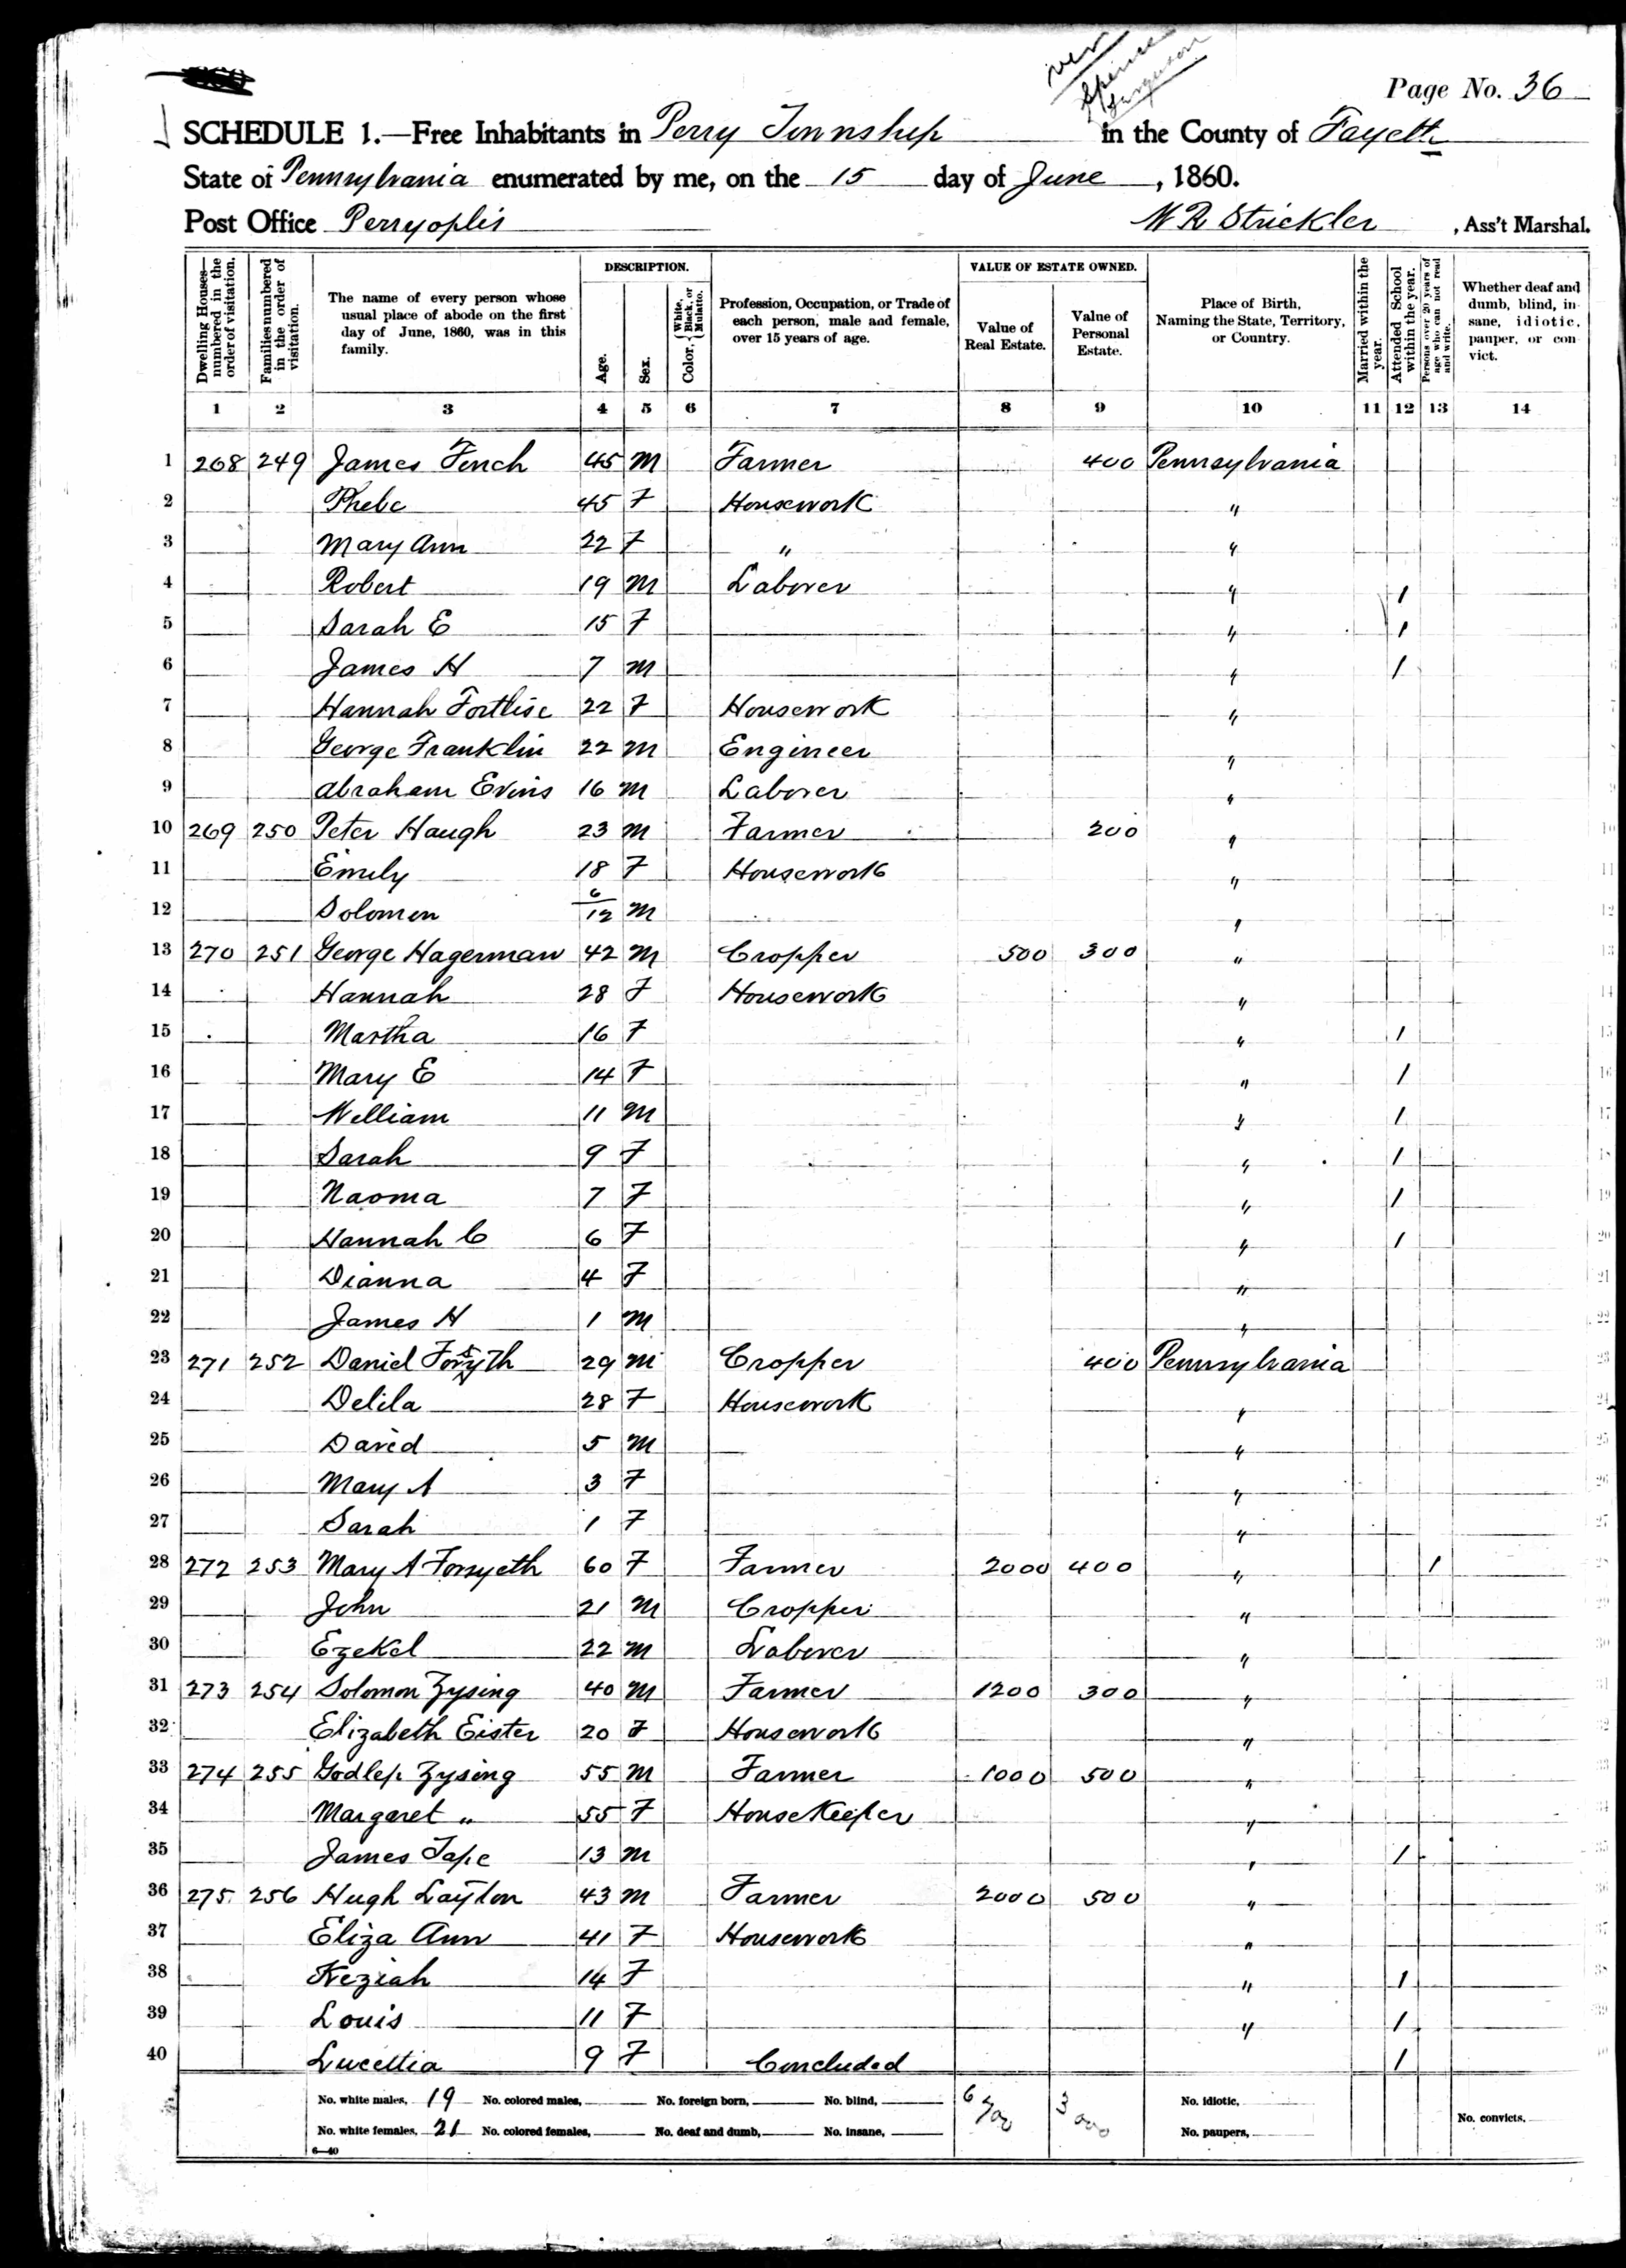 Page No. 36
SCHEDULE 1.—Free Inhabitants in Perry Township in the County of Fayette
State of Pennsylvania enumerated by me, on the 15 day of June, 1860.
Post Office Perryoplis W R Strickler, Ass't Marshal.
Dwelling Houses—numbered in the order of visitation.
Families numbered in the order of visitation.
The name of every person whose usual place of abode on the first day of June, 1860, was in this family.
DESCRIPTION.
Age.
Sex.
Color, White, Black, or Mulatto.
Profession, Occupation, or Trade of each person, male and female, over 15 years of age.
VALUE OF ESTATE OWNED.
Value of Real Estate.
Value of Personal Estate.
Place of Birth, Naming the State, Territory, or Country.
Married within the year.
Attended School within the year.
Persons over 20 years of age who can not read and write.
Whether deaf and dumb, blind, insane, idiotic, pauper, or convict.
1 2 3 4 5 6 7 8 9 10 11 12 13 14
1 268 249 James Finch 45 M Farmer 400 Pennsylvania
2 Phebe 45 F Housework "
3 Mary Ann 22 F " "
4 Robert 19 M Laborer " 1
5 Sarah E 15 F " 1
6 James H 7 M " 1
7 Hannah 22 F Housework "
8 George Franklin 22 M Engineer "
9 Abraham Evins 16 M Laborer "
10 269 250 Peter Haugh 23 M Farmer 200 "
11 Emily 18 F Housework "
12 Solomon 6/12 M "
13 270 251 George Hagerman 42 M Cropper 500 300 "
14 Hannah 28 F Housework "
15 Martha 16 F " 1
16 Mary E 14 F " 1
17 William 11 M " 1
18 Sarah 9 F " 1
19 Naoma 7 F " 1
20 Hannah C 6 F " 1
21 Dianna 4 F "
22 James H 1 M "
23 271 252 Daniel Forsyth 29 M Cropper 400 Pennsylvania
24 Delila 28 F Housework "
25 David 5 M "
26 Mary A 3 F "
27 Sarah 1 F "
28 272 253 Mary A Forsyeth 60 F Farmer 2000 400 " 1
29 John 21 M Cropper "
30 Ezekel 22 M Laborer "
31 273 254 Solomon Zysing 40 M Farmer 1200 300 "
32 Elizabeth Eister 20 F Housework "
33 274 255 Godlep Zysing 55 M Farmer 1000 500 "
34 Margaret " 55 F HouseKeeper "
35 James Tape 13 M " 1
36 275 256 Hugh Layton 43 M Farmer 2000 500 "
37 Eliza Ann 41 F Housework "
38 Keziah 14 F " 1
39 Louis 11 F " 1
40 Lucettia 9 F Concluded 1
No. white males, 19 No. colored males, No. foreign born, No. blind, No. idiotic,
No. white females, 21 No. colored females, No. deaf and dumb, No. insane, No. paupers, No. convicts,
6—40